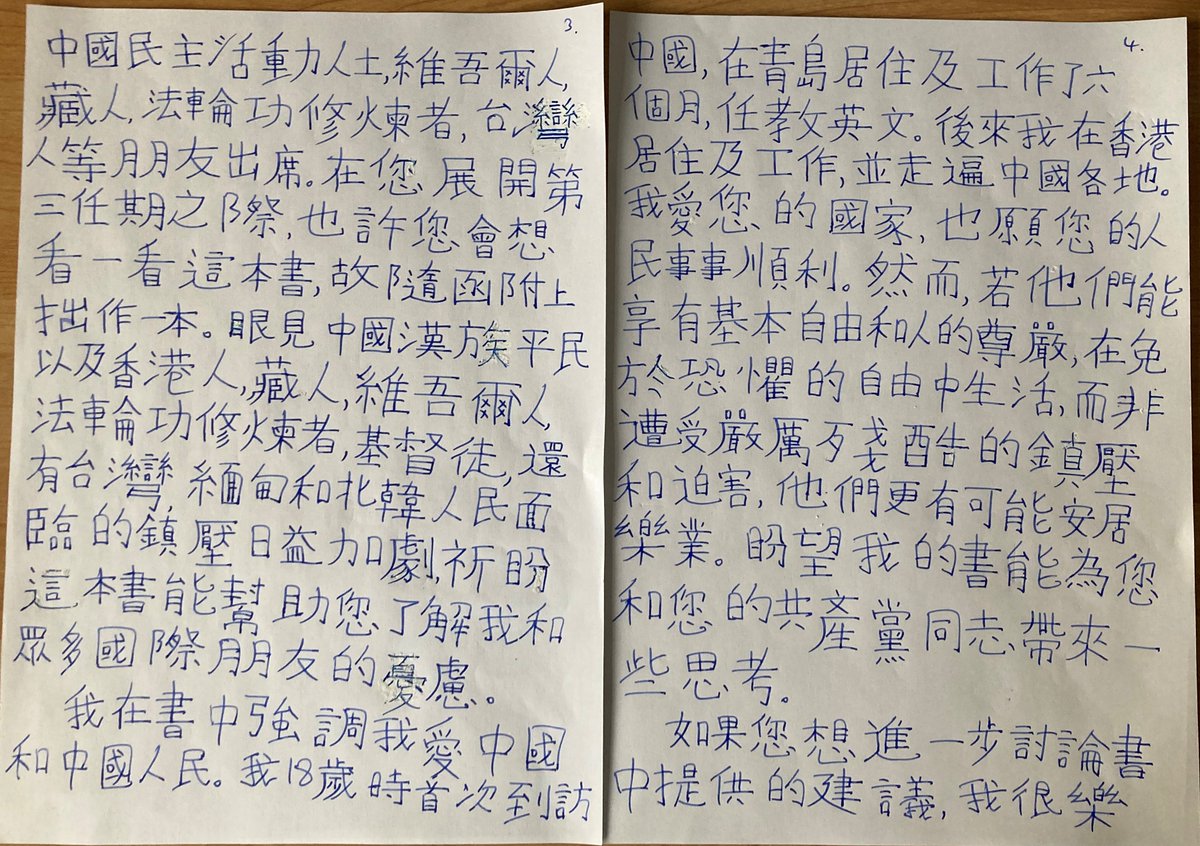 3.
中國民主活動人士,維吾爾人,
藏人,法輪功修煉者,台灣
人等朋友出席。在您展開第
三任期之際,也許您會想
看一看這本書,故隨函附上
拙作一本。眼見中國漢族平民
以及香港人,藏人,維吾爾人,
法輪功修煉者,基督徒,還
有台灣,緬甸和北韓人民面
臨的鎮壓日益加劇,祈盼
這本書能幫助您了解我和
眾多國際朋友的憂慮。
我在書中強調我愛中國
和中國人民。我18歲時首次到訪
4.
中國,在青島居住及工作了六
個月,任教英文。後來我在香港
居住及工作,並走遍中國各地。
我愛您的國家,也願您的人
民事事順利。然而,若他們能
享有基本自由和人的尊嚴,在免
於恐懼的自由中生活,而非
遭受嚴厲殘酷的鎮壓
和迫害,他們更有可能安居
樂業。盼望我的書能為您
和您的共產黨同志帶來一
些思考。
如果您想進一步討論書
中提供的建議,我很樂